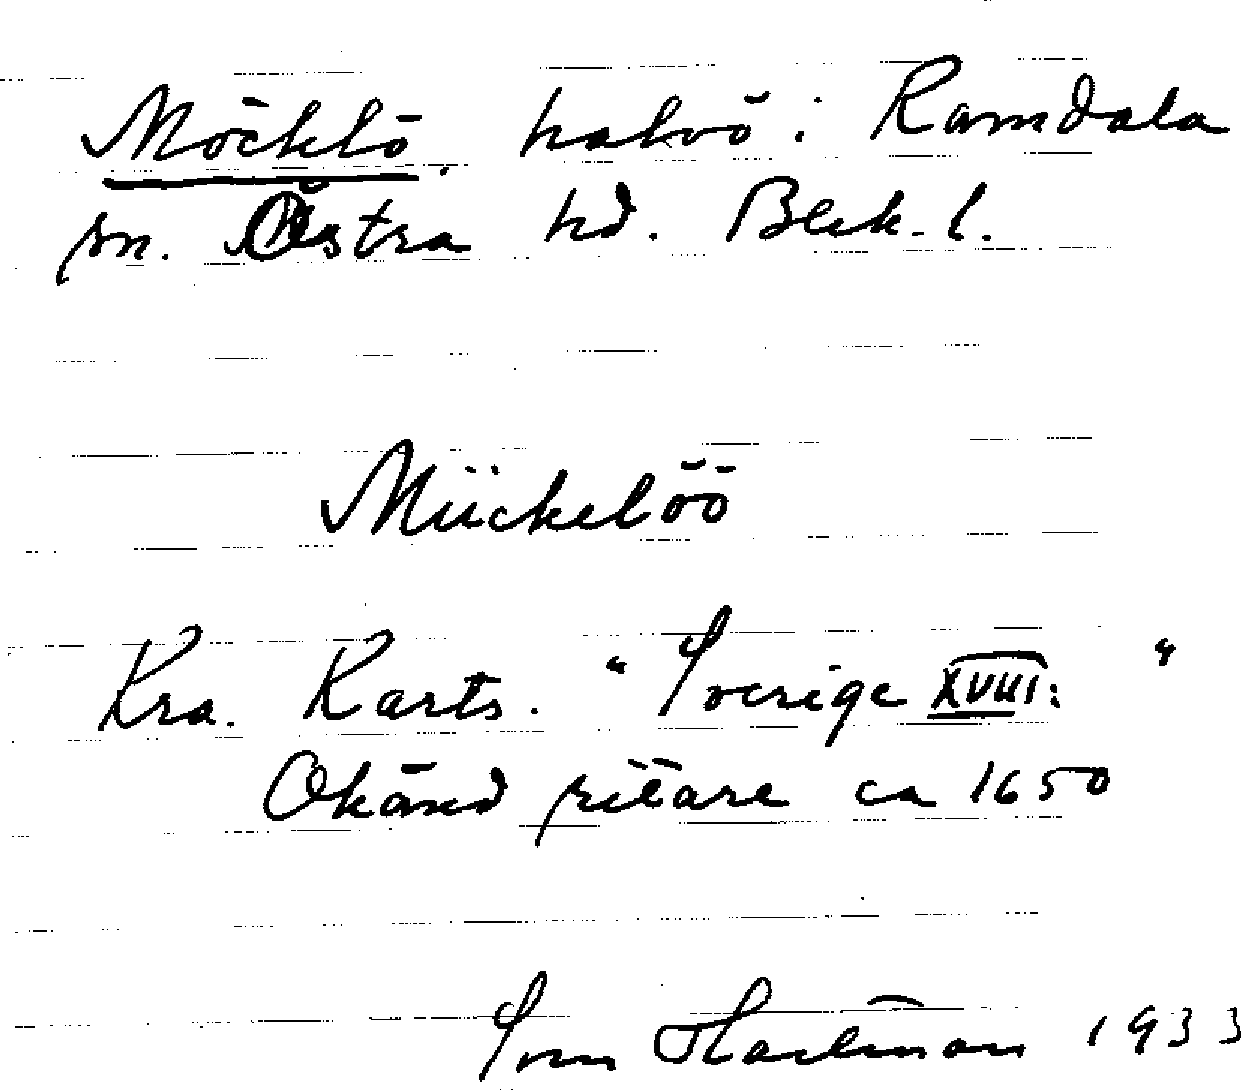 Möcklö, halvö i Ramdala
sn. Östra hd. Blek. l.
Mückelöö
Kra. Karts. "Sverige XVIII: "
Okänd ritare ca 1650
Sven Hartman 1933